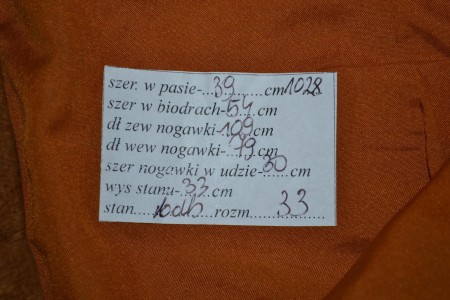 szer. w pasie-...39............cm 1028
szer w biodrach-54....cm
dł zew nogawki-109cm
dł wew nogawki-..79.cm
szer nogawki w udzie-30 cm
wys stanu-33..cm
stan.....bdb....rozm....33..........